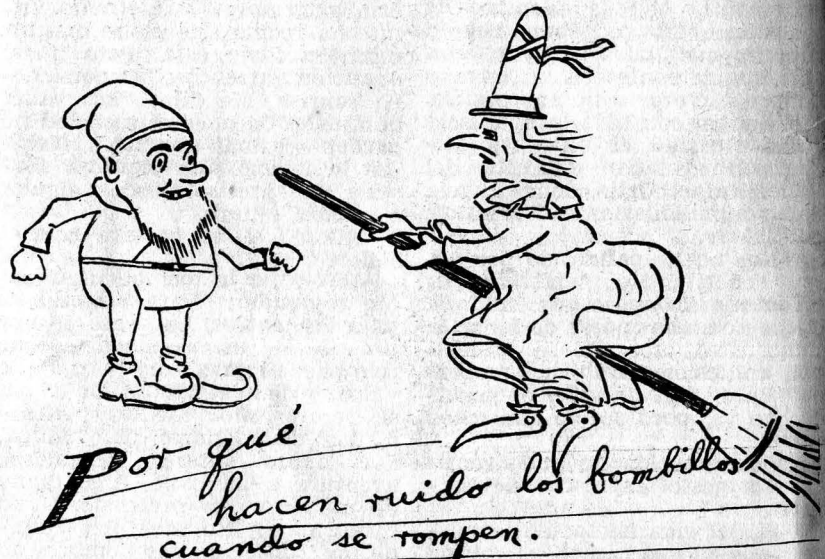 Por qué
hacen ruido los bombillos
cuando se rompen.